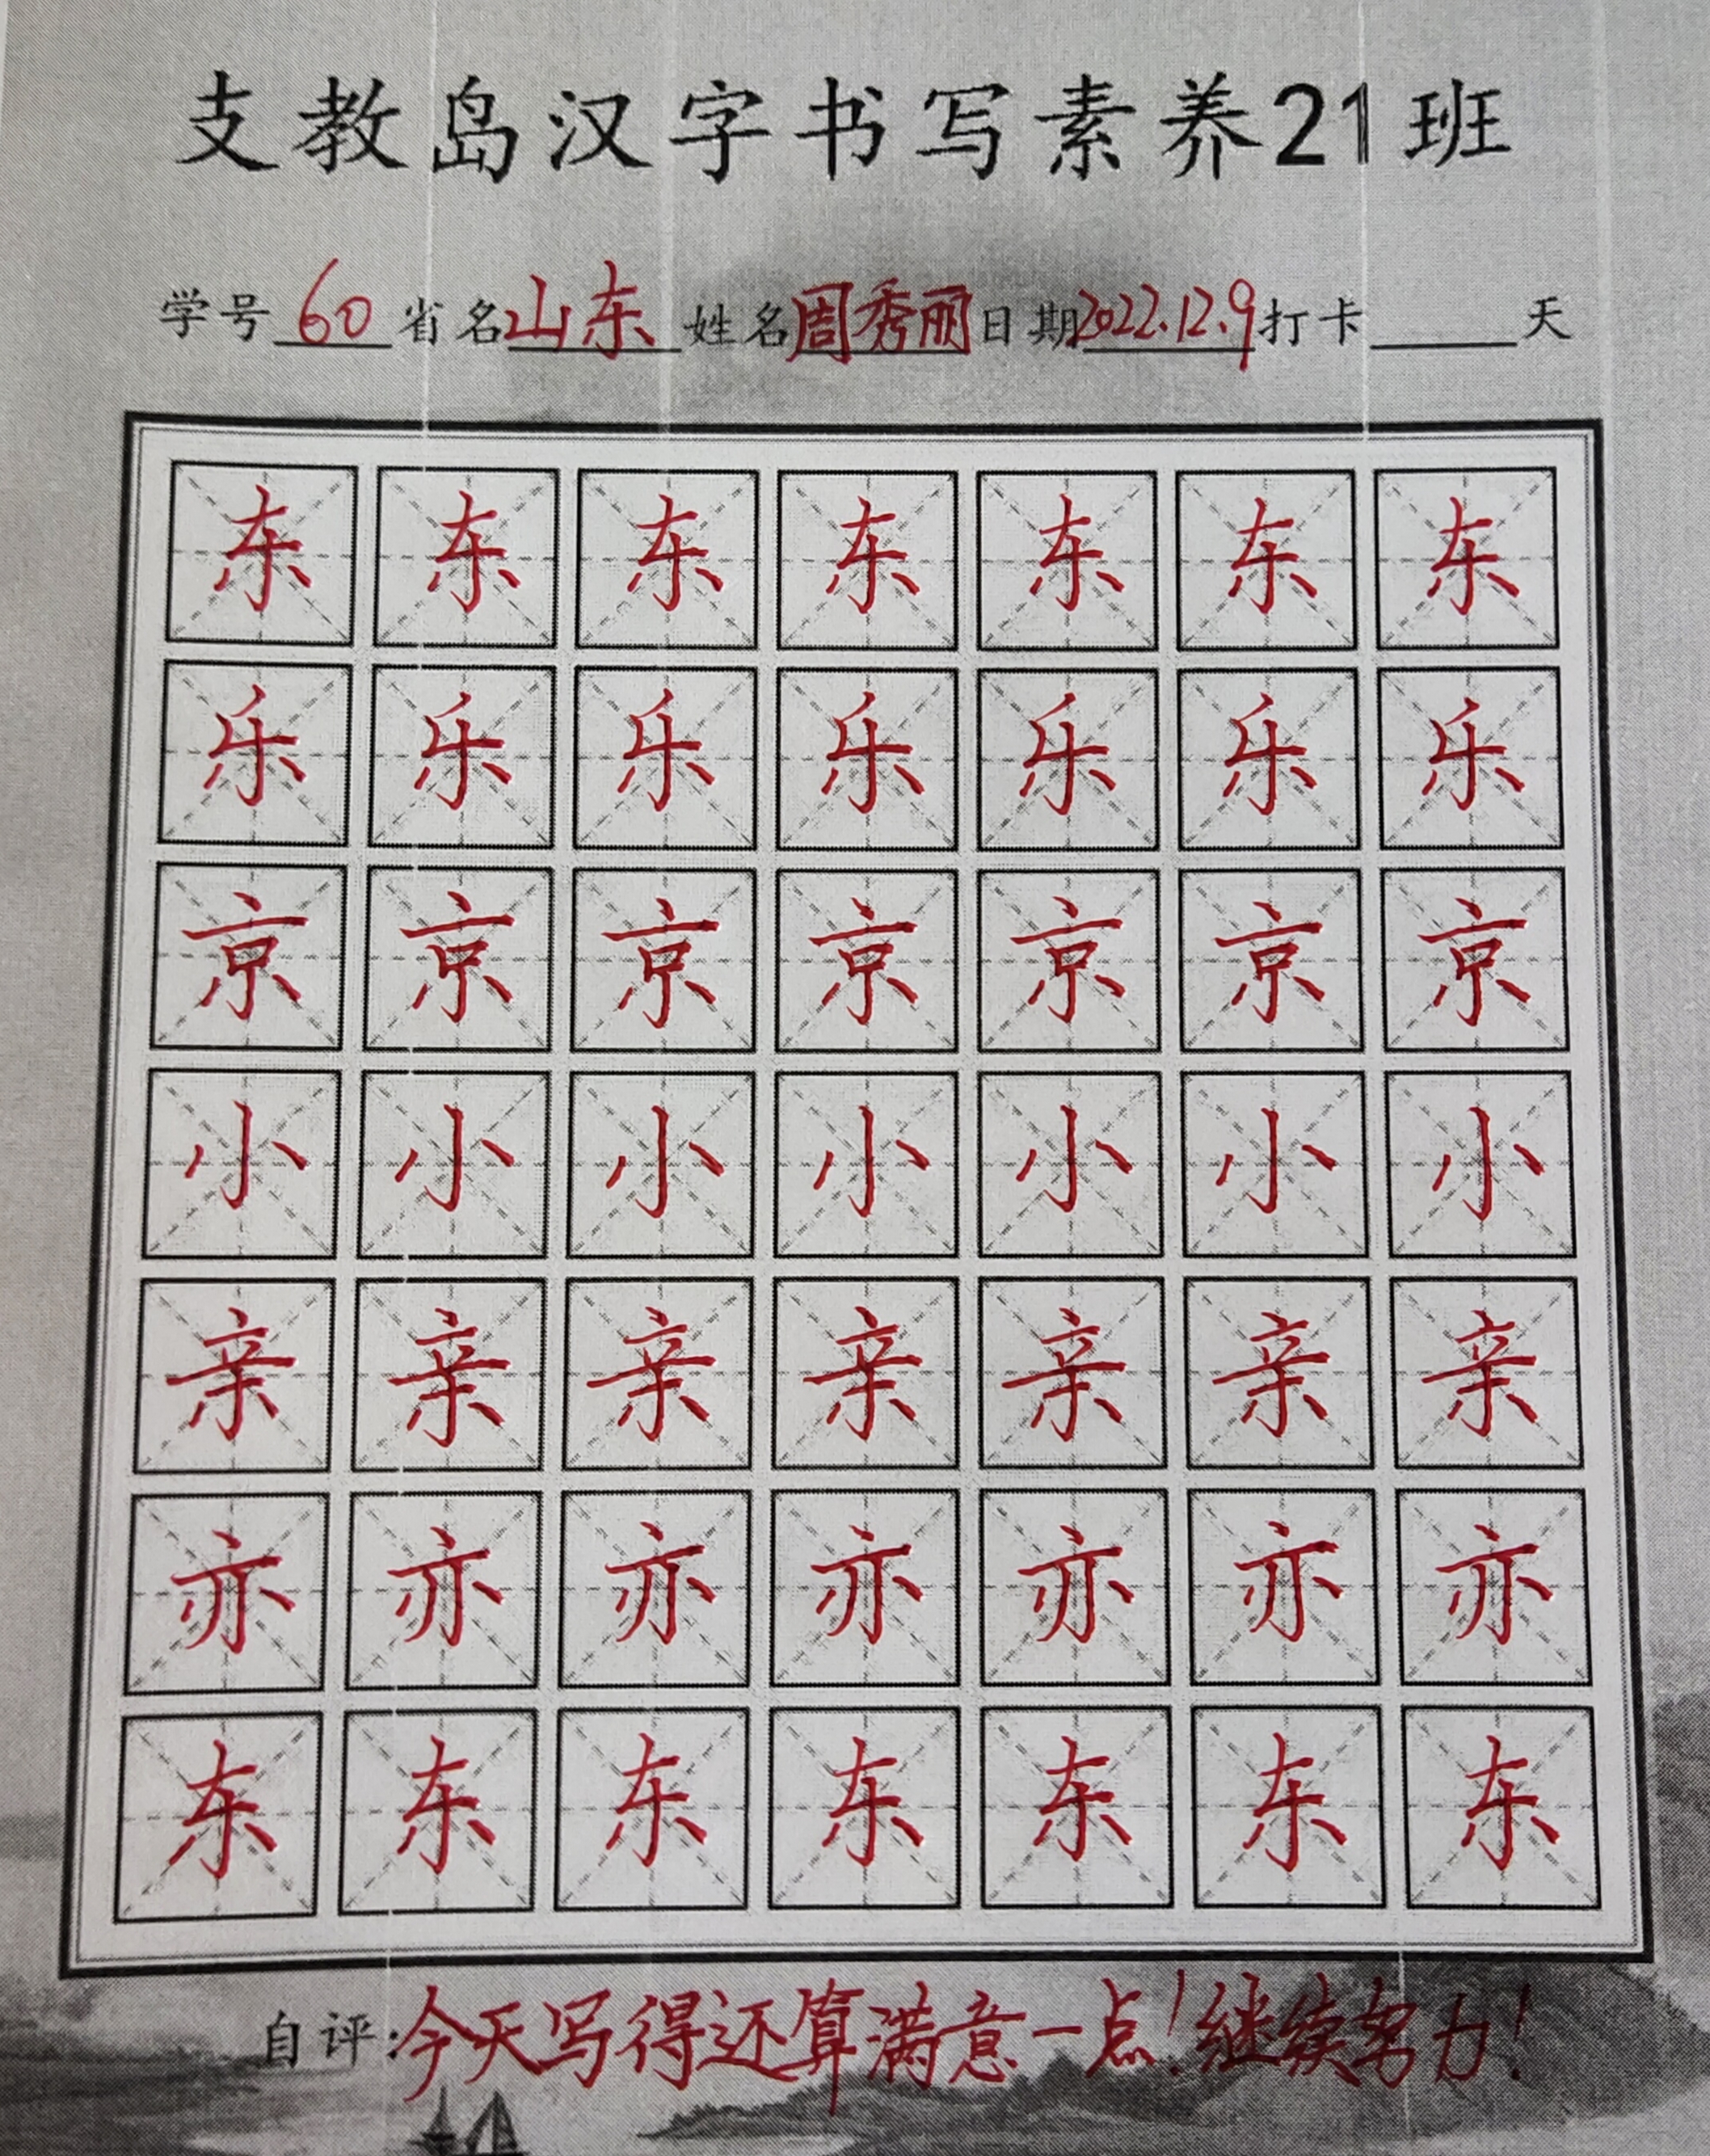 支教岛汉字书写素养21班
学号 60 省名 山东 姓名 周秀丽 日期 2022.12.9 打卡______天
东 东 东 东 东 东 东
乐 乐 乐 乐 乐 乐 乐
京 京 京 京 京 京 京
小 小 小 小 小 小 小
亲 亲 亲 亲 亲 亲 亲
亦 亦 亦 亦 亦 亦 亦
东 东 东 东 东 东 东
自评:今天写得还算满意一点!继续努力!